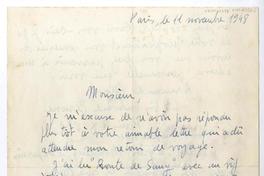 Paris, le 11 novembre 1948
Monsieur,
Je m'excuse de n'avoir pas répondu
plus tôt à votre aimable lettre qui a dû
attendre mon retour de voyage.
J'ai lu "Route de" avec un vif